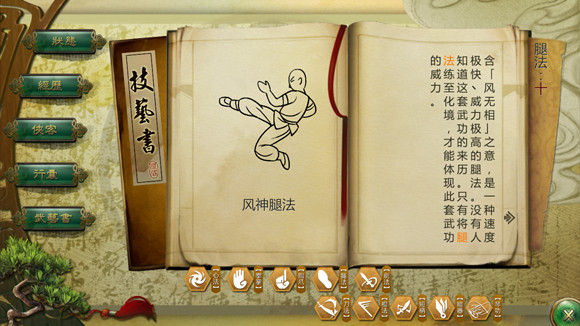 狀態
經歷
俠客
行囊
技藝書
风神腿法
腿法：十
含「风无相」之意，是一种速度
极快、威力极高的腿法。没有人
知道这套武功的来历。只有将腿
法练至化境，才能体现此套武功
的威力。